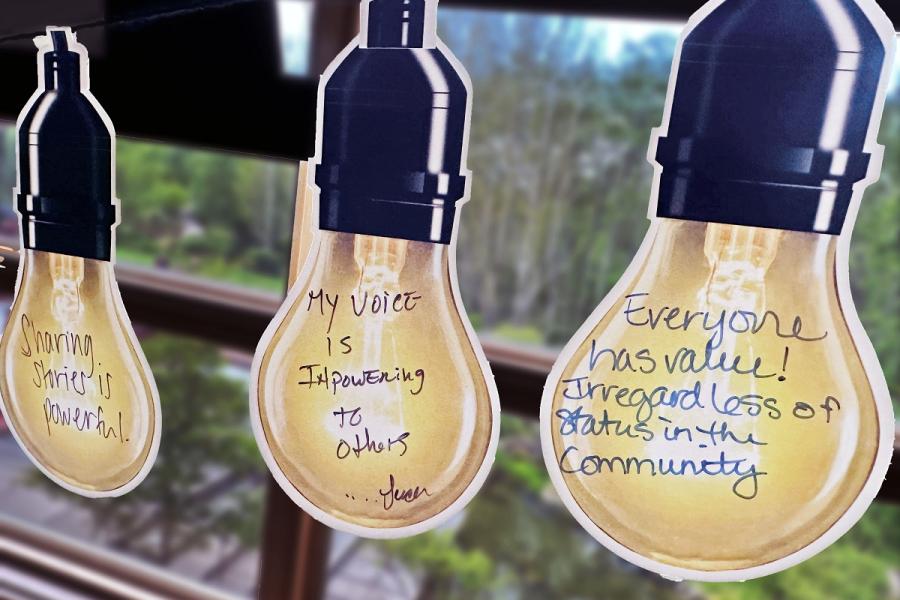 Sharing
stories is
powerful.
My voice
is
Inpowering
to
others
Everyone
has value!
Irregardless of
status in the
Community